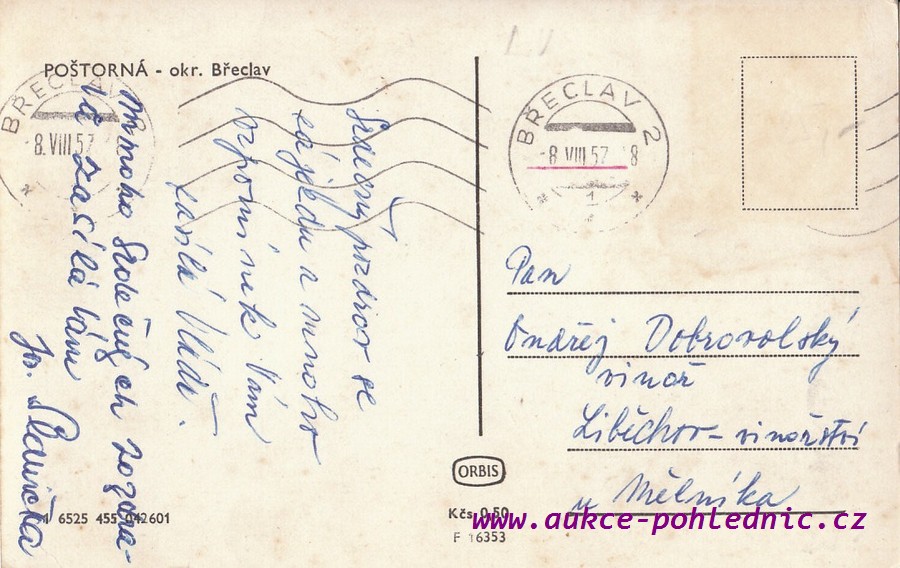 POŠTORNÁ - okr. Břeclav
BŘECLAV
8.VIII.57
Srdečný pozdrav se
zájezdu a mnoho
vzpomínek Vám
zasílá Vláďa.
Mnoho srdečných pozdra-
vů zasílá Vám
Jos.
BŘECLAV 2
-8.VIII.57 8
1
Pan
Ondřej Dobrovolský
vinař
Liběchov - vinařství
u Mělníka
ORBIS
6525 455 042601
Kčs 0,50
F 16353
www.aukce-pohlednic.cz